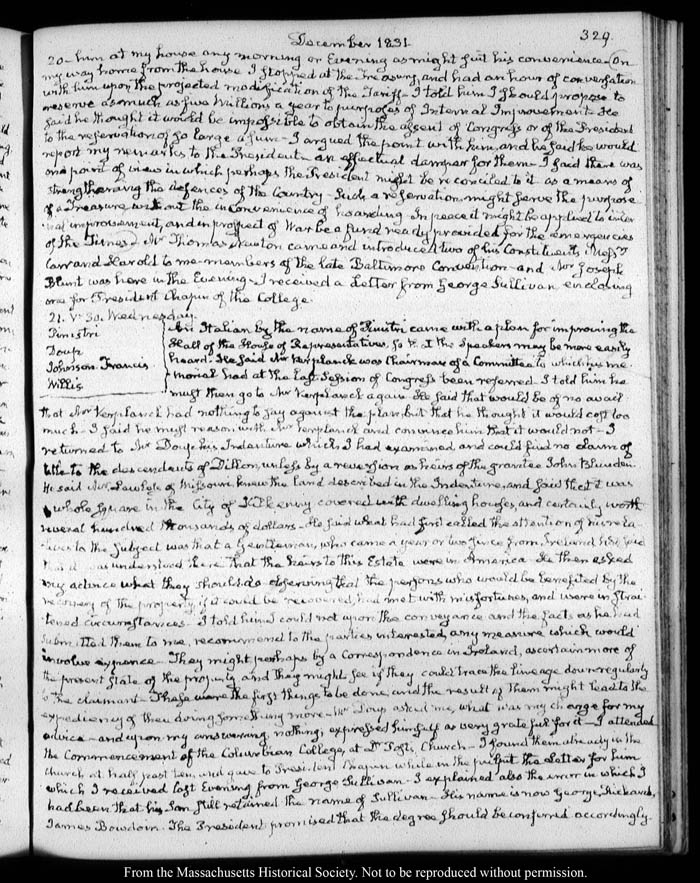 December 1831.
329.
20- him at my house any morning or Evening as might suit his convenience- On
my way home from the house I stopped at the Treasury, and had an hour of conversation
with him upon the projected modification of the Tariff- I told him I should propose to
reserve as much as five Millions a year to purposes of Internal Improvement- He
said he thought it would be impossible to obtain the assent of Congress or of the President
to the reservation of so large a sum- I argued the point with him, and he said he would
report my remarks to the President- an effectual damper for them- I said there was
one point of view in which perhaps the President might be reconciled to it as a means of
strengthening the defences of the Country- Such a reservation might serve the purpose
of a Treasure without the inconvenience of hoarding- In peace it might be applied to inter
nal improvement, and in prospect of War be a fund ready provided for the emergencies
of the Times- Mr Thomas Newton came and introduced two of his Constituents Messrs
Carr and Harold to me- members of the late Baltimore Convention- and Mr Joseph
Blunt was here in the Evening- I received a Letter from George Sullivan enclosing
one for President Chapin of the College.
21. V. 30. Wednesday.
Pinistri
Doup
Johnson. Francis
Willis
An Italian by the name of Pinistri came with a plan for improving the
Hall of the House of Representatives, so that the Speakers may be more easily
heard. He said Mr Verplanck was Chairman of a Committee to which his me-
morial had at the last Session of Congress been referred. I told him he
must then go to Mr Verplanck again- He said that would be of no avail
that Mr Verplanck had nothing to say against the plan, but that he thought it would cost too
much- I said he must reason with Mr Verplanck and convince him that it would not- I
returned to Mr Doup his Indenture which I had examined and could find no claim of
title to the descendents of Dillon, unless by a reversion as heirs of the grantee John Blunden.
He said Mr Lawless of Missouri knew the land described in the Indenture, and said that it was
a whole square in the City of Kilkenny covered with dwelling houses, and certainly worth
several hundred thousands of dollars- He said what had first called the attention of his re la-
tives to the subject was that a Gentleman, who came a year or two since from Ireland had said
that it was understood there that the heirs to this Estate were in America- He then asked
my advice what they should do- observing that the persons who would be benefited by the
recovery of the property, if it could be recovered, had met with misfortunes, and were in strai-
tened circumstances- I told him I could not upon the conveyance and the facts as he had
submitted them to me, recommend to the parties interested, any measure which would
involve expence- They might perhaps by a Correspondence in Ireland, ascertain more of
the present state of the property and they might see if they could trace the lineage down regularly
to the claimant- These were the first things to be done, and the result of them might lead to the
expediency of then doing something more- Mr Doup asked me, what was my charge for my
advice- and upon my answering, nothing, expressed himself as very grateful for it- I attended
the Commencement of the Columbian College, at Dr Post's, Church- I found them already in the
Church at half past ten, and gave to President Chapin while in the pulpit the Letter for him
which I received last Evening from George Sullivan- I explained also the error in which I
had been that his Son still retained the name of Sullivan- His name is now George Richards,
James Bowdoin. The President promised that the degree should be conferred accordingly.
From the Massachusetts Historical Society. Not to be reproduced without permission.